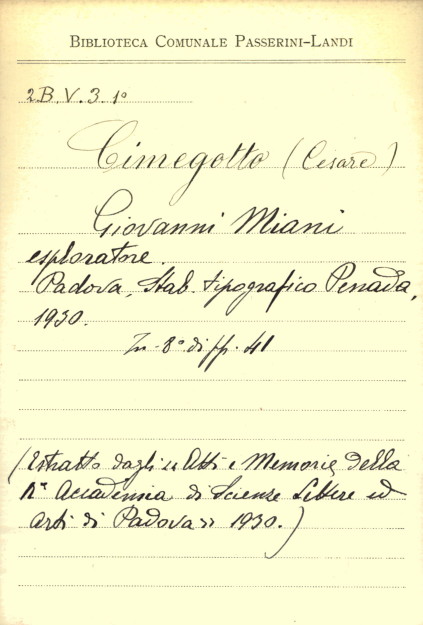 BIBLIOTECA COMUNALE PASSERINI-LANDI
2B. V. 3. 1º
Cimegotto (Cesare)
Giovanni Miani
esploratore.
Padova, Stab. tipografico Penada,
1930.
In-8º di pp. 41
(Estratto dagli "Atti e Memorie della
Rª Accademia di Scienze Lettere ed
arti di Padova" 1930.)